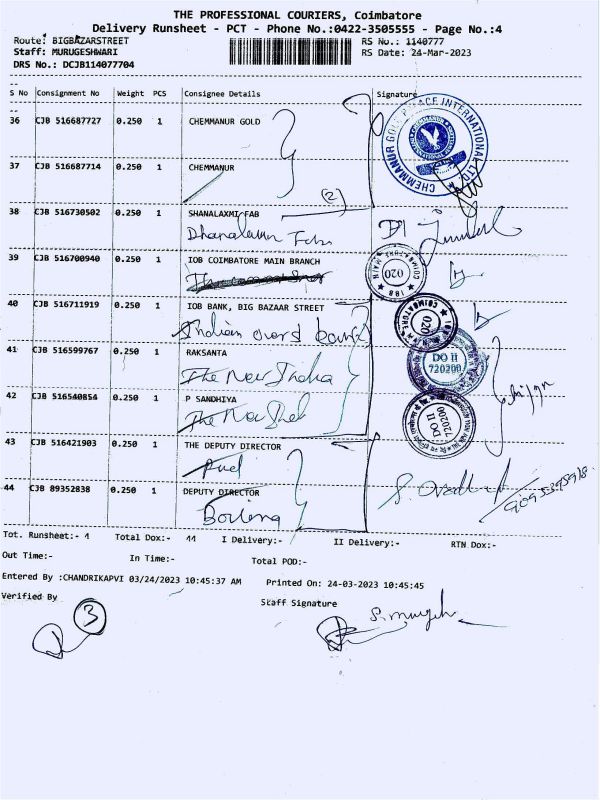 THE PROFESSIONAL COURIERS, Coimbatore
Delivery Runsheet - PCT - Phone No.:0422-3505555 - Page No.:4
Route: BIGBAZARSTREET RS No.: 1140777
Staff: MURUGESHWARI RS Date: 24-Mar-2023
DRS No.: DCJB114077704
S No Consignment No Weight PCS Consignee Details Signature
36 CJB 516687727 0.250 1 CHEMMANUR GOLD
CHEMMANUR GOLD PALACE INTERNATIONAL LTD.
37 CJB 516687714 0.250 1 CHEMMANUR
(2)
38 CJB 516730502 0.250 1 SHANALAXMI FAB
Dhanalaxmi Fab
39 CJB 516700940 0.250 1 IOB COIMBATORE MAIN BRANCH
COIMBATORE MAIN
020
40 CJB 516711919 0.250 1 IOB BANK, BIG BAZAAR STREET
Indian Overs bank
COIMBATORE
020
41 CJB 516599767 0.250 1 RAKSANTA
The New India
DO II
720200
42 CJB 516540854 0.250 1 P SANDHIYA
The New
DO II
720200
43 CJB 516421903 0.250 1 THE DEPUTY DIRECTOR
44 CJB 89352838 0.250 1 DEPUTY DIRECTOR
Tot. Runsheet:- 4 Total Dox:- 44 I Delivery:- II Delivery:- RTN Dox:-
Out Time:- In Time:- Total POD:-
Entered By :CHANDRIKAPVI 03/24/2023 10:45:37 AM Printed On: 24-03-2023 10:45:45
Verified By Staff Signature
3